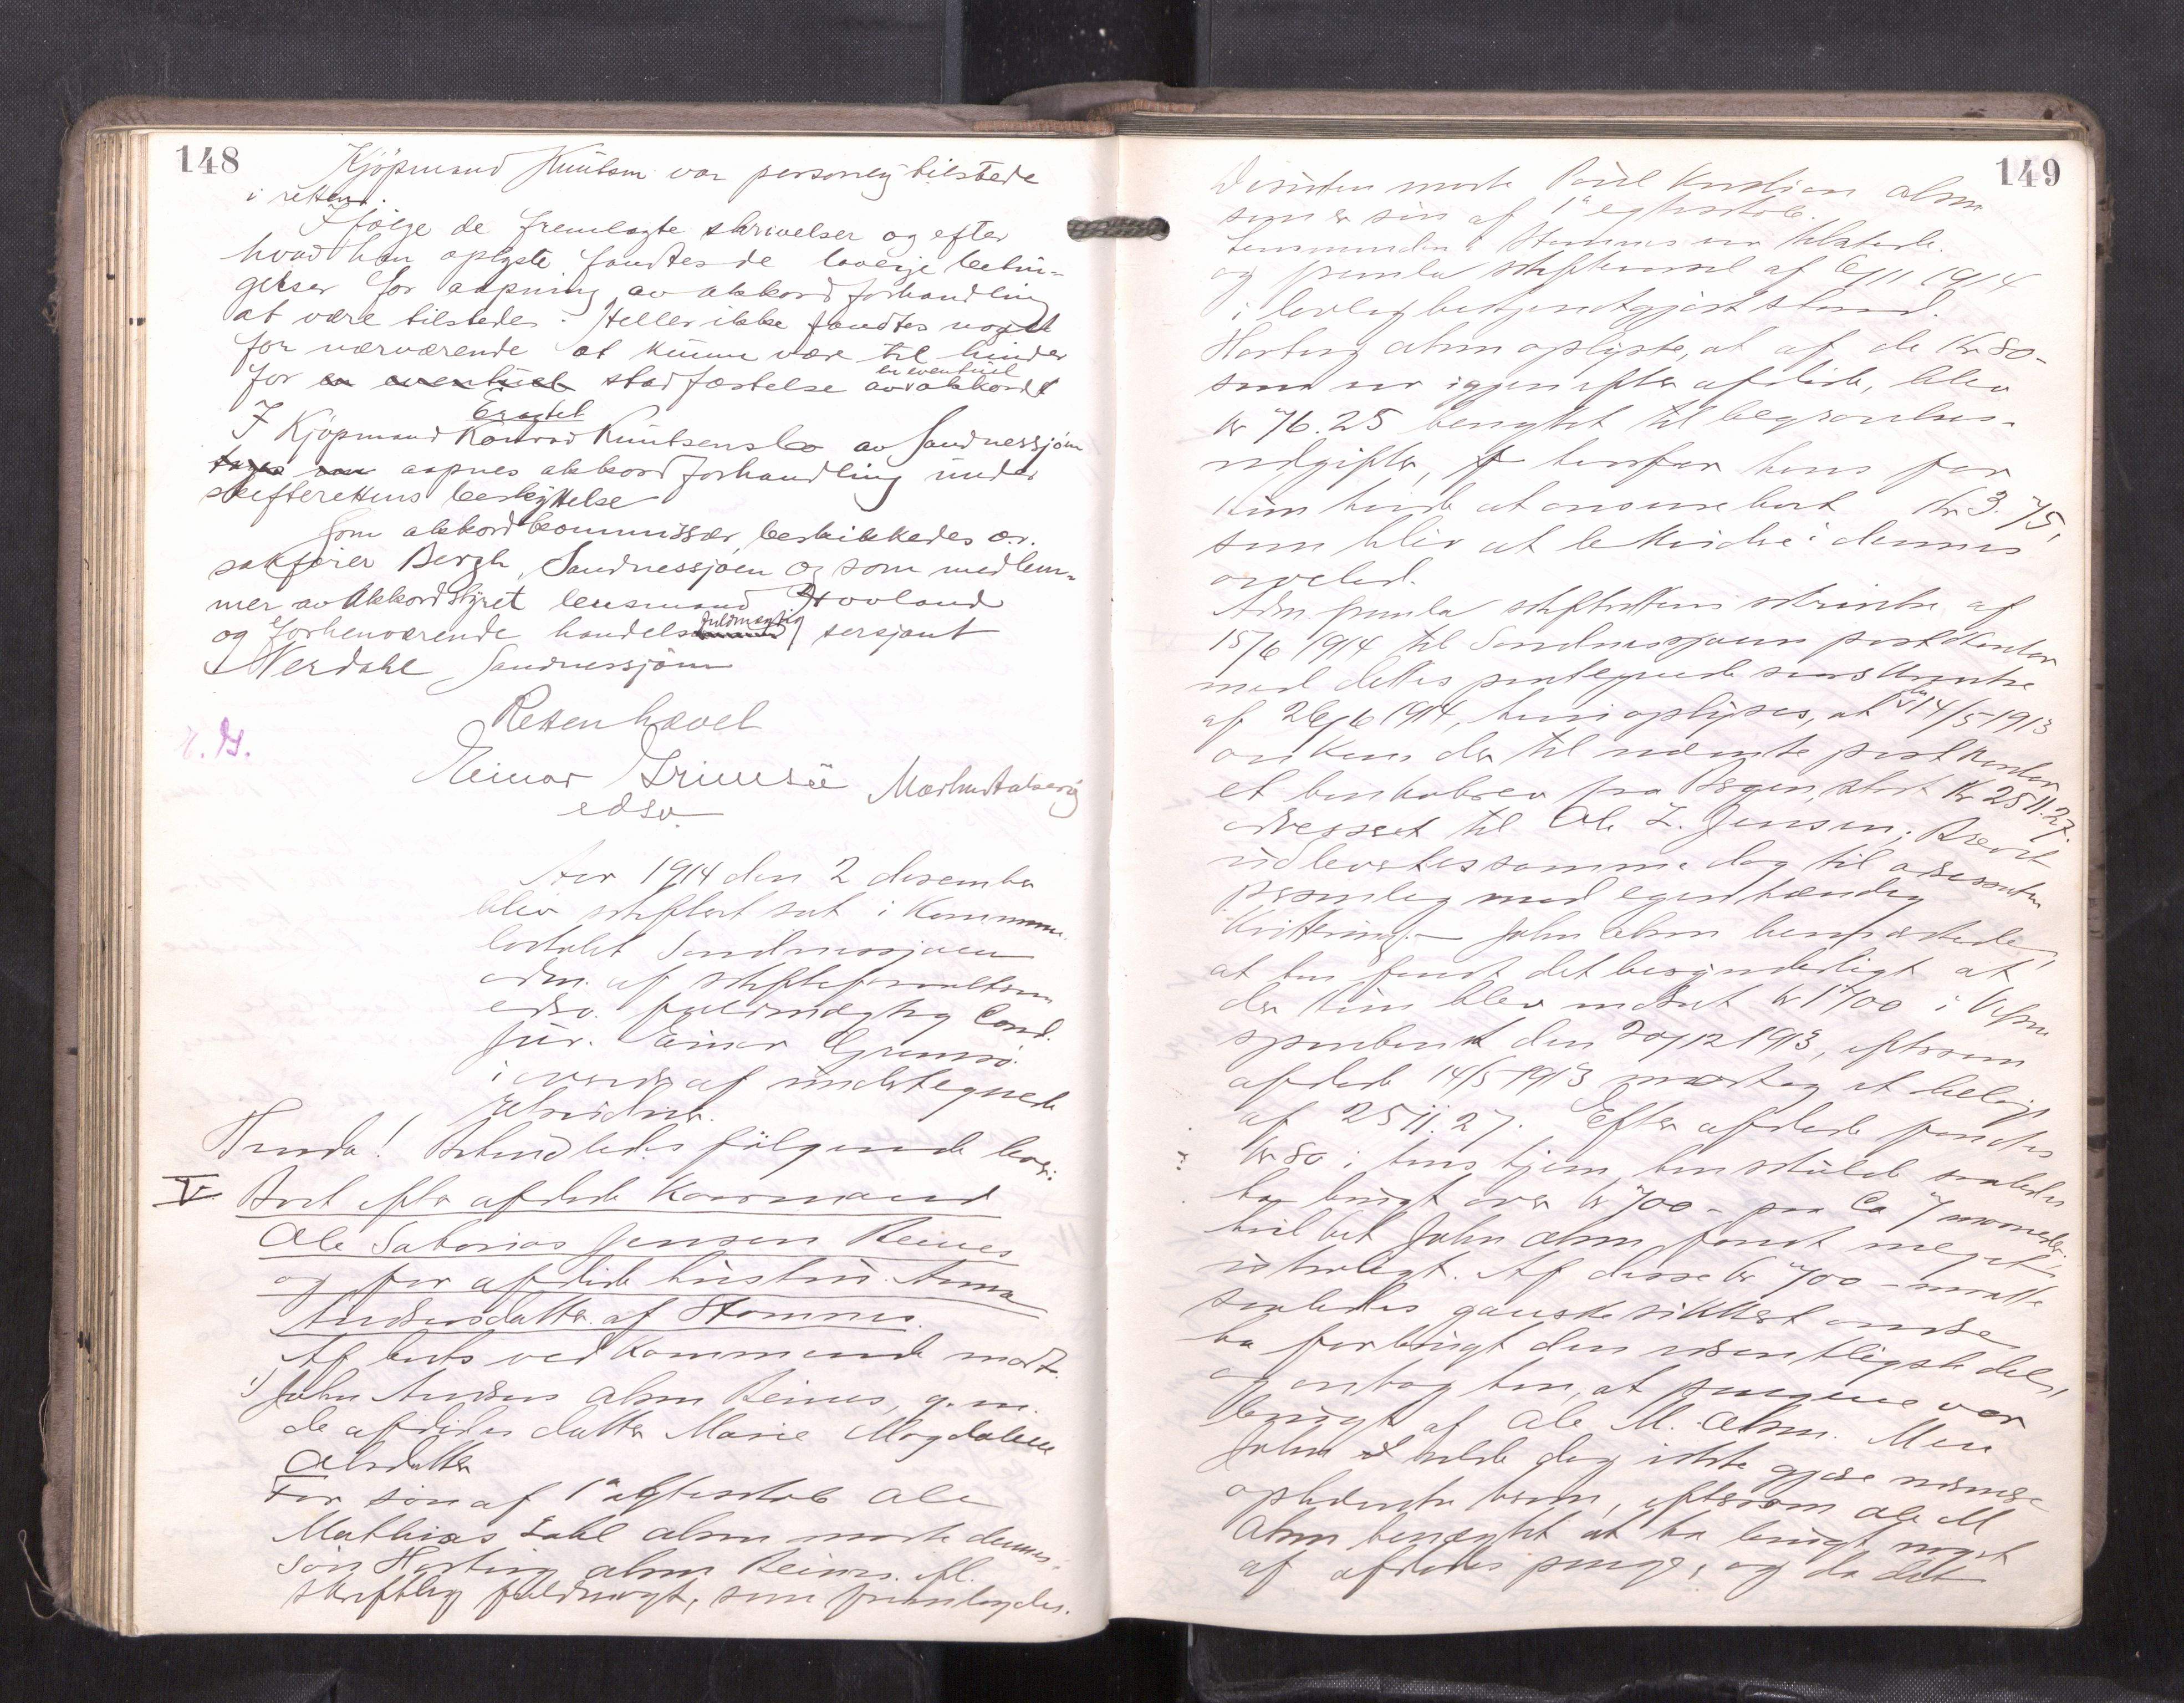 148
Kjøpmand Knutsen var personlig tilstede
i retten.
Ifølge de fremlagte skrivelser og efter
hvad han oplyste fandtes de lovlige betin-
gelser for aapning av akkordforhandling
at være tilstede. Heller ikke fandtes noget
for nærværende at kunne være til hinder
for en eventuel stadfæstelse av en eventuel akkord
Eragtet
I Kjøpmand Konrad Knutsens bo av Sandnessjøen
aapnes akkordforhandling under
skifterettens beskyttelse
Som akkordkommissær beskikkedes o.r.
sakfører Bergh, Sandnessjøen og som medlem-
mer av akkordstyret lensmand Hovland
og forhenværende handelsfuldmægtig sersjant
Nerdahl Sandnessjøen
Retten hævet
E. G.
Einar Grimsø
edsv.
Aar 1914 den 2 desember
blev skifteret sat i Kommune
lokalet Sandnessjøen
adm. af skifteforvalteren
edsv. fuldmægtig Cand.
jur. Einar Grimsø
i overvær af undertegnede
retsvidner.
Behandledes følgende boer:
V. Boet efter afdøde Kaarmand
Ole Zakarias Jensen Reines
og før afdøde hustru Anna
Andersdatter af Stamnes.
Af boets vedkommende mødt
1) John Andreas Olsen Reines, g. m.
de afdødes datter Marie Magdalene
Olsdatter
For søn af 1ste egteskab Ole
Mathias Dahl Olsen møtte dennes
søn Hartvig Olsen Reines ifl.
skriftlig fuldmagt, som fremlagdes.
149
Desuten møtte Poul Kristian Olsen
som er søn af 1ste egteskab.
Lensmanden i Stamnes var tilstede.
og fremla skiftekundgjørelse af 6/11 1914
i lovlig bekjendtgjort stand.
Hartvig Olsen oplyste, at af de Kr 80-
som var igjen efter afdøde, blev
Kr 76.25 benyttet til begravelses-
udgifter, hvorfor hans far
kun havde at ansvare boet Kr 3.75,
som blev at bekoste i dennes
arvelod.
Adm. fremla skifterettens skrivelse af
15/6 1914 til Sandnessjøen postkontor
med dettes paategnede svarskrivelse
af 26/6 1914, hvori oplyses, at 14/5 1913
ankom der til nævnte postkontor
et bankobrev fra Bergen, stort Kr 2511.27.
adresseret til Ole Z. Jensen; Brevet
udleveredes samme dag til adressaten
personlig med egenhændig
Kvittering. – John Olsen bemærkede,
at han fandt det besynderligt at
der kun blev indsat Kr 1700 i Vefsn
sparebank den 20/12 1913, eftersom
afdøde 14/5 1913 mottog et beløp
af 2511.27. Efter afdøde fandtes
Kr 80 i hans hjem, han skulde saaledes
ha brugt over Kr 700 – paa Ca 7 maaneder,
hvilket John Olsen fandt meget
utroligt. Af disse Kr 700 – maatte
saaledes ganske sikkert andre
ha forbrugt den væsentligste del,
og antog han, at pengene var
brugt af Ole M. Olsen. Men
John vilde dog ikke gjøre nærmere
paastand herom, eftersom Ole M
Olsen benægtet at ha brugt noget
af afdødes penge, og da det